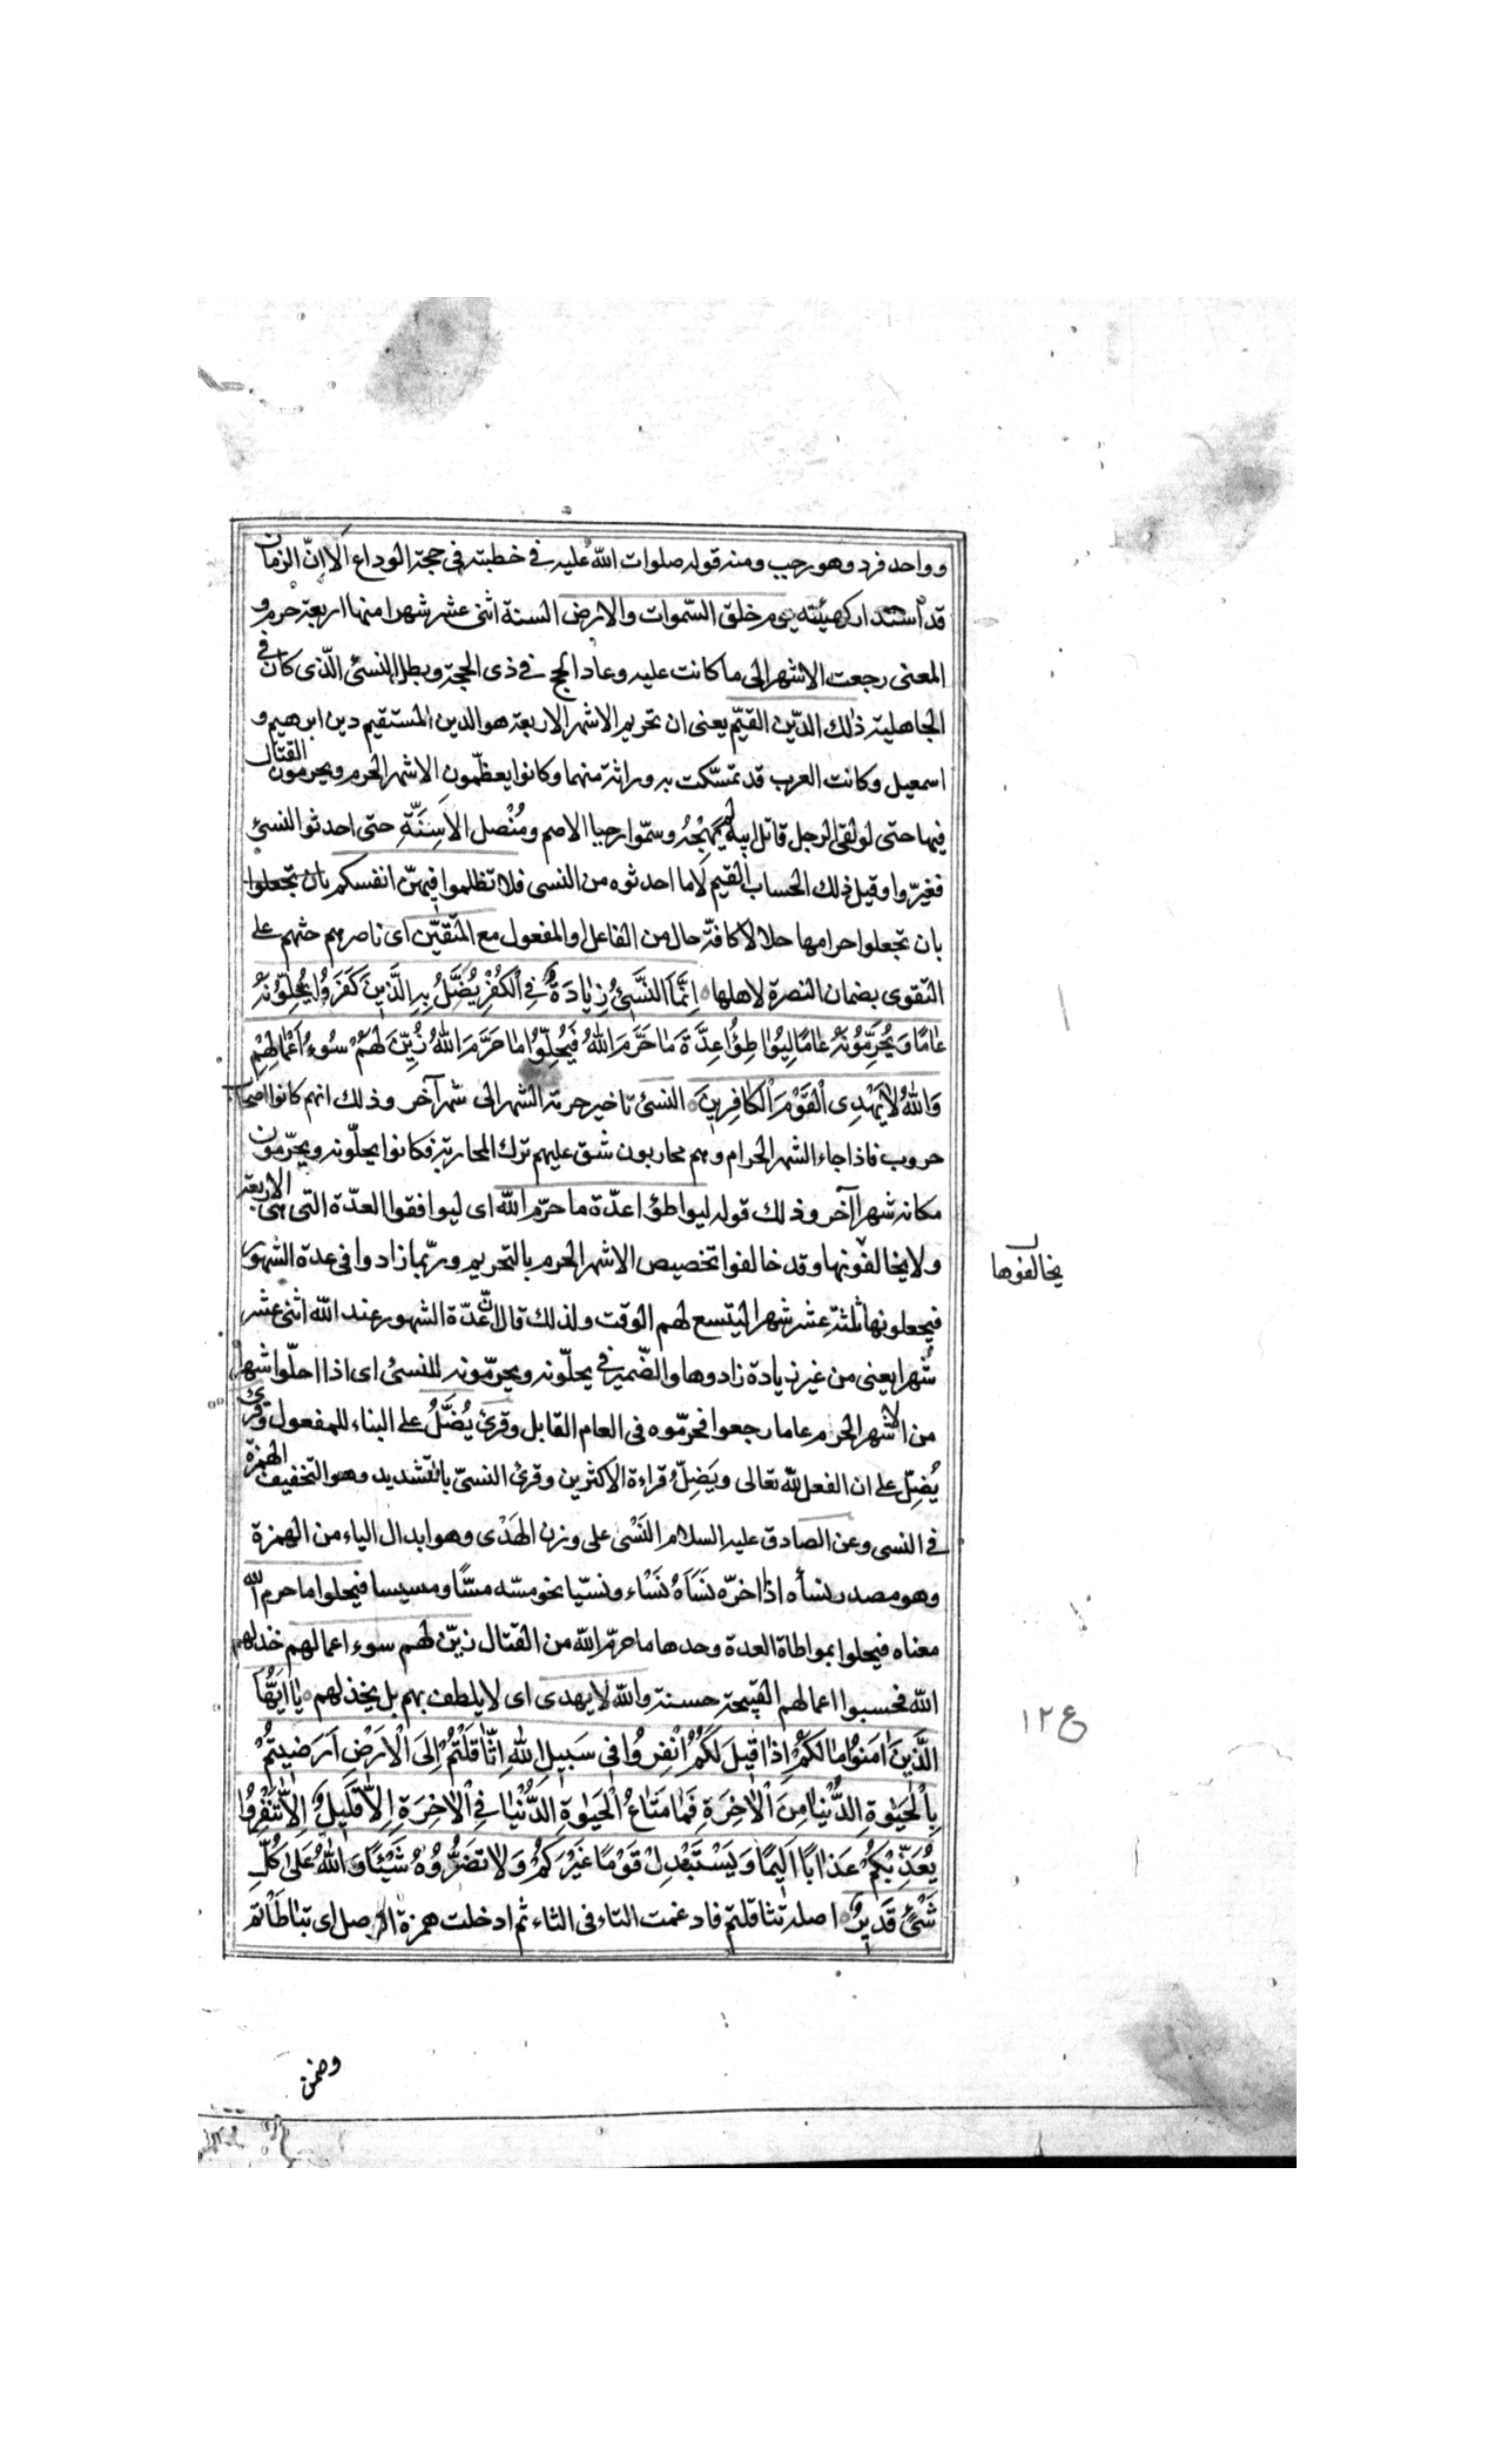 وواحد فرد وهو رجب ومنه قوله صلوات الله عليه في خطبته في حجة الوداع الا انّ الزمان
قد استدار كهيئته يوم خلق السّموات والارض السنة اثنى عشر شهرا منها اربعة حرم و
المعنى رجعت الاشهر الى ما كانت عليه وعاد الحج في ذى الحجة وبطل النسئ الّذى كان في
الجاهلية ذلك الدّين القيّم يعنى ان تحريم الاشهر الاربعة هو الدين المستقيم دين ابرهيم و
اسمعيل وكانت العرب قد تمسّكت به وراثة منهما وكانوا يعظّمون الاشهر الحرم ويحرمون القتال
فيها حتى لو لقى الرجل قاتل ابيه لم يَهِجْهُ وسمّوا رجبا الاصم ومُنْصل الاَسِنَّةِ حتى احدثوا النسئ
فغيرّوا وقيل ذلك الحساب القيم لا ما احدثوه من النسى فلا تظلموا فيهنّ انفسكم بان تجعلوا
بان تجعلوا حرامها حلالا كافّة حال من الفاعل او المفعول مع المتّقين اى ناصرهم حثهم على
التقوى بضمان النصرة لاهلها اِنَّمَا النَّسَىٓئُ زِيَادَةٌ فِى الْكُفْرِ يُضَلُّ بِهِ الَّذِينَ كَفَرُوا يُحِلّوُنَهُ
عَامًا وَيُحَرِّمُونَهُ عَامًا لِيُوَاطِؤُا عِدَّةَ مَا حَرَّمَ اللهُ فَيُحِلّوُا مَا حَرَّمَ اللهُ زُيِّنَ لَهُمْ سُوءُ اَعْمَالِهِمْ
وَاللهُ لَا يَهْدِى الْقَوْمَ الْكَافِرِينَ النسئ تاخير حرمة الشهر الى شهر آخر وذلك انهم كانوا اصحاب
حروب فاذا جاء الشهر الحرام وهم محاربون شق عليهم ترك المحاربة فكانوا يحلّونه ويحرّمون
مكانه شهرا آخر وذلك قوله ليواطؤا عدّة ما حرّم الله اى ليوافقوا العدّة التى هى الاربعة
ولا يخالفونها وقد خالفوا تخصيص الاشهر الحرم بالتحريم وربّما زادوا فى عدة الشهور
يخالفوها
فيجعلونها ثلثة عشر شهرا ليتسع لهم الوقت ولذلك قال انّ عدّة الشهور عند الله اثنى عشر
شهرا يعنى من غير زيادة زادوها والضّمير في يحلّونه ويحرّمونه للنسئ اى اذا احلّوا شهرا
من الاشهر الحرم عاما رجعوا فحرمّوه فى العام القابل وقرئ يُضَلُّ على البناء للمفعول وقرئ
يُضِلّ على ان الفعل لله تعالى ويَضِلُّ قراءة الاكثرين وقرئ النسىّ بالتشديد وهو التخفيف الهمزة
في النسى وعن الصادق عليه السلام النَسْى على وزن الهَدْى وهو ابدال الياء من الهمزة
وهو مصدر نسأه اذا اخرّه نَسَأَهُ نَسْاء ونسيّا نحو مسّه مسّا ومسيسا فيحلوا ما حرم الله
معناه فيحلوا بمواطاة العدة وحدها ما حرّم الله من القتال زيّن لهم سوء اعمالهم خذلهم
الله فحسبوا اعمالهم القبيحة حسنة والله لا يهدى اى لا يلطف بهم بل يخذلهم يَا اَيُّهَا
ع ١٢
الَّذِينَ اٰمَنُوا مَا لَكُمْ اِذَا قِيلَ لَكُمُ انْفِرُوا فِى سَبِيلِ اللهِ اثَّاقَلْتُمْ اِلَى الْاَرْضِ اَرَضِيتُمْ
بِالْحَيٰوةِ الدُّنْيَا مِنَ الْاٰخِرَةِ فَمَا مَتَاعُ الْحَيٰوةِ الدُّنْيَا فِى الْاٰخِرَةِ اِلَّا قَلِيلٌ اِلَّا تَنْفِرُوا
يُعَذِّبْكُمْ عَذَابًا اَلِيمًا وَيَسْتَبْدِلْ قَوْمًا غَيْرَكُمْ وَلَا تَضُرُّوُهُ شَيْئًا وَاللهُ عَلَى كُلِّ
شَىْئٍ قَدِيرٌ اصله تثاقلتم فادغمت التاء فى الثاء ثم ادخلت همزة الوصل اى تباطأتم
وضمن